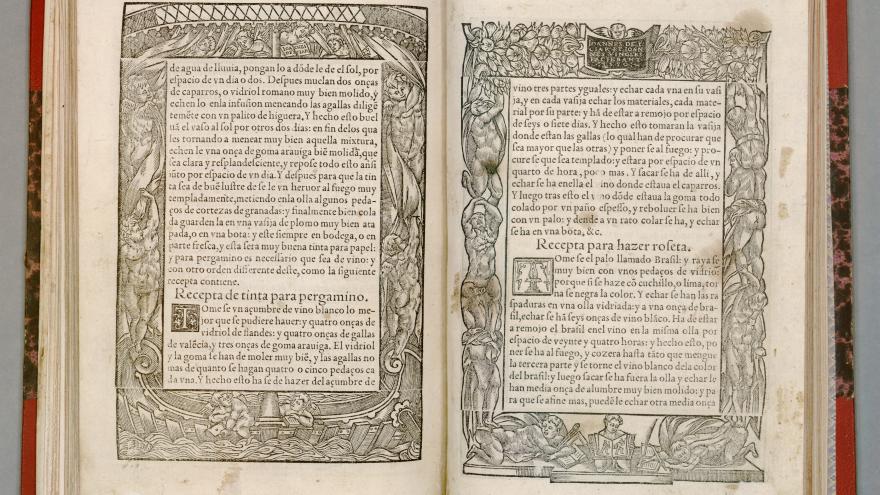 de agua de lluuia, pongan lo a dõde le de el sol, por
espacio de vn dia o dos. Despues muelan dos onças
de caparros, o vidriol romano muy bien molido, y
echen lo enla infusion meneando las agallas diligẽ
temẽte con vn palito de higuera, Y hecho esto buel
uã el vaso al sol por otros dos dias: en fin delos qua
les tornando a menear muy bien aquella mixtura,
echen le vna onça de goma arauiga biẽ molida, que
sea clara y resplandesciente, y repose todo esto ansi
iũto por espacio de vn dia. Y despues para que la tin
ta sea de buẽ lustre de se le vn heruor al fuego muy
templadamente, metiendo enla olla algunos peda-
ços de cortezas de granadas: y finalmente bien cola
da guarden la en vna vasija de plomo muy bien ata
pada, o en vna bota: y este siempre en bodega, o en
parte fresca, y esta sera muy buena tinta para papel:
y para pergamino es necessario que sea de vino: y
con otro orden differente deste, como la siguiente
recepta contiene.
Recepta de tinta para pergamino.
TOme se vn açumbre de vino blanco lo me-
jor que se pudiere hauer: y quatro onças de
vidriol de flandes: y quatro onças de gallas
de valẽcia, y tres onças de goma arauiga. El vidriol
y la goma se han de moler muy biẽ, y las agallas no
mas de quanto se hagan quatro o cinco pedaços ca
da vna. Y hecho esto ha se de hazer del açumbre de
IOANNES DE Y
CIAR ET IOAN
NES VINGLES
FACIEBANT
vino tres partes yguales: y echar cada vna en su vasi
ja, y en cada vasija echar los materiales, cada mate-
rial por su parte: y hã de estar a remojo por espacio
de seys o siete dias. Y hecho esto tomaran la vasija
donde estan las gallas (lo qual han de procurar que
sea mayor que las otras) y poner se al fuego: y pro-
cure se que sea templado: y estara por espacio de vn
quarto de hora, poco mas. Y sacar se ha de alli, y
echar se ha enella el vino donde estaua el caparros.
Y luego tras esto el vino dõde estaua la goma todo
colado por vn paño espesso, y reboluer se ha bien
con vn palo: y dende a vn rato colar se ha, y echar
se ha en vna bota, &c.
Recepta para hazer roseta.
TOme se el palo llamado Brasil: y raya se
muy bien con vnos pedaços de vidrio:
porque si se haze cõ cuchillo, o lima, tor
na se negra la color. Y echar se han las ra
spaduras en vna olla vidriada: y a vna onça de bra-
sil, echar se hã seys onças de vino blãco. Ha de estar
a remojo el brasil enel vino en la misma olla por
espacio de veynte y quatro horas: y hecho esto, po
ner se ha al fuego, y cozera hasta tãto que mengue
la tercera parte y se torne el vino blanco dela color
del brasil: y luego sacar se ha fuera la olla y echar le
han media onça de alumbre muy bien molido: y pa
ra que se afine mas, puedẽ le echar otra media onça